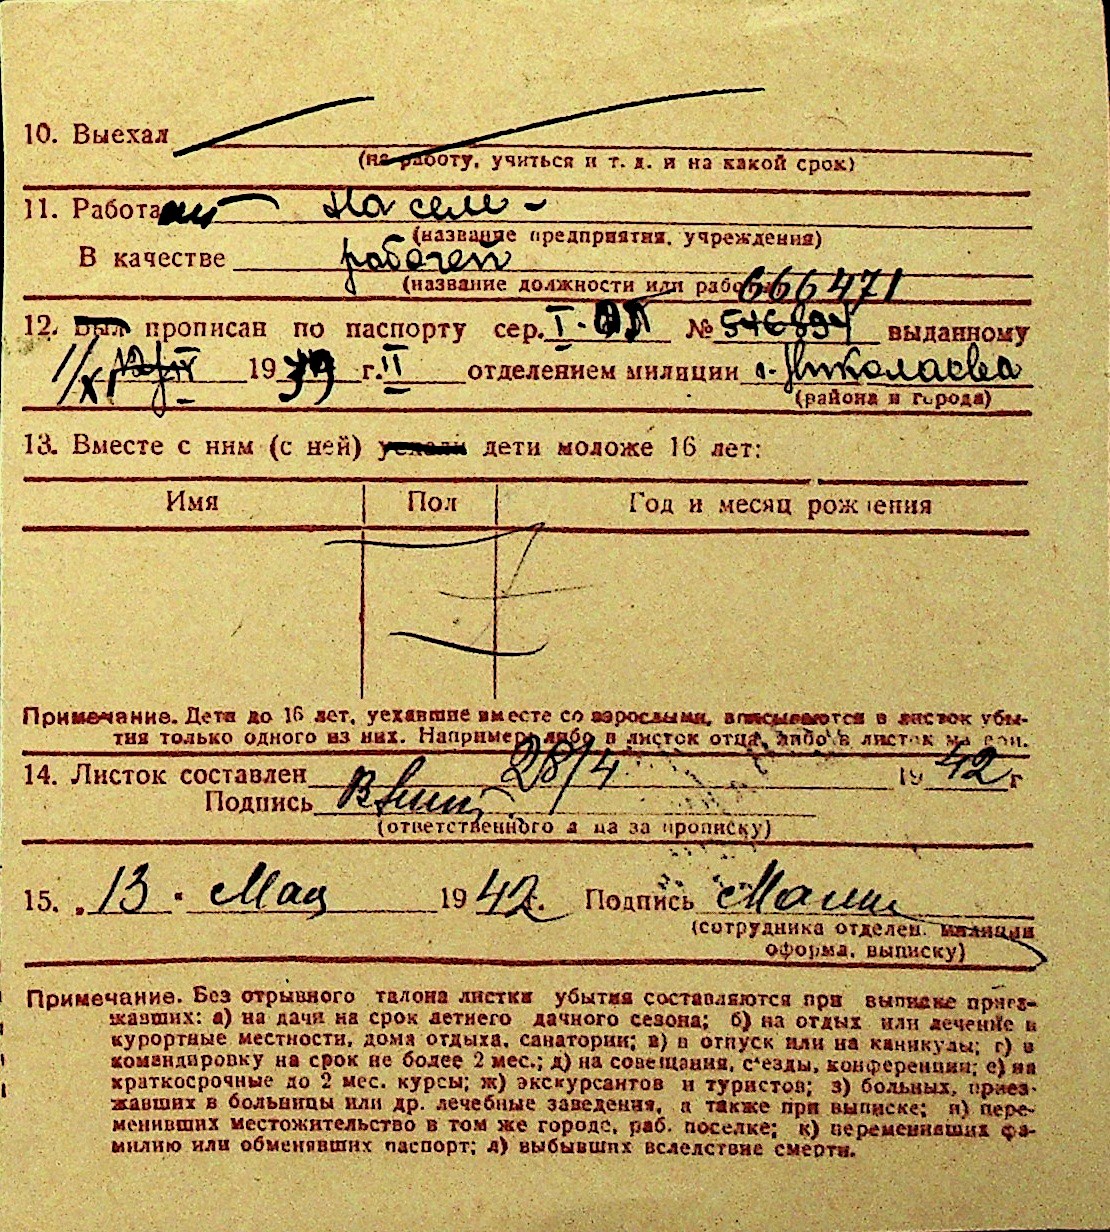 10. Выехал
(на работу, учиться и т. д. и на какой срок)
11. Работа
(название предприятия, учреждения)
В качестве рабочей
(название должности или работы)
666471
12. Был прописан по паспорту сер. I- № 546894 выданному
1/XI 1939 г. II отделением милиции г. Николаева
(района и города)
13. Вместе с ним (с ней) уехали дети моложе 16 лет:
Имя Пол Год и месяц рождения
Примечание. Дети до 16 лет, уехавшие вместе со взрослыми, вписываются в листок убы-
тия только одного из них. Например либо в листок отца, либо в листок матери.
14. Листок составлен 28/4 1942 г
Подпись
(ответственного лица за прописку)
15. „13" Мая 1942 г. Подпись
(сотрудника отделен. милиции
оформл. выписку)
Примечание. Без отрывного талона листки убытия составляются при выписке приез-
жавших: а) на дачи на срок летнего дачного сезона; б) на отдых или лечение в
курортные местности, дома отдыха, санатории; в) в отпуск или на каникулы; г) в
командировку на срок не более 2 мес.; д) на совещания, съезды, конференции; е) на
краткосрочные до 2 мес. курсы; ж) экскурсантов и туристов; з) больных, приез-
жавших в больницы или др. лечебные заведения, а также при выписке; и) пере-
менивших местожительство в том же городе, раб. поселке; к) переменивших фа-
милию или обменявших паспорт; л) выбывших вследствие смерти.